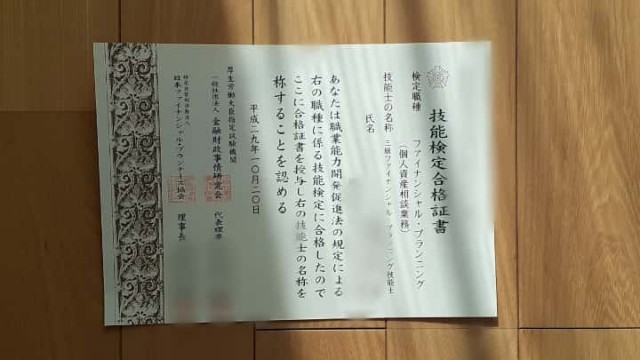 技能検定合格証書
検定職種　ファイナンシャル・プランニング
（個人資産相談業務）
技能士の名称　三級ファイナンシャル・プランニング技能士
氏名
あなたは職業能力開発促進法の規定による
右の職種に係る技能検定に合格したので
ここに合格証書を授与し右の技能士の名称を
称することを認める
平成二九年一〇月二〇日
厚生労働大臣指定試験機関
一般社団法人　金融財政事情研究会　代表理事
特定非営利活動法人
日本ファイナンシャル・プランナーズ協会　理事長